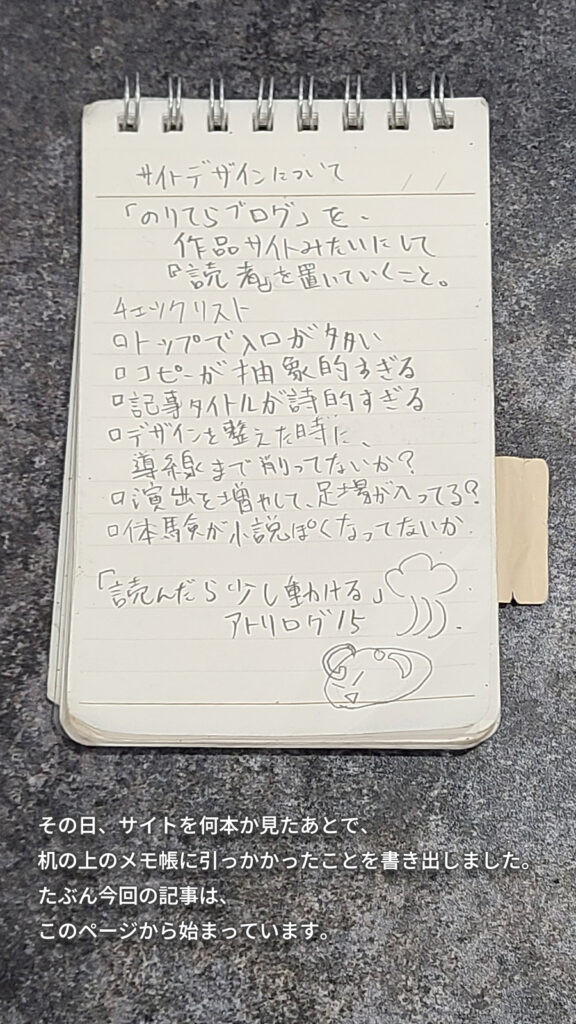 サイトデザインについて
/ /
「のりてらブログ」を、
作品サイトみたいにして
『読者』を置いていくこと。
チェックリスト
□トップで入口が多い
□コピーが抽象的すぎる
□記事タイトルが詩的すぎる
□デザインを整えた時に、
導線まで削ってないか?
□演出を増やして、足場がへってる?
□体験が小説ぽくなってないか
「読んだら少し動ける」
アトリログ15
その日、サイトを何本か見たあとで、
机の上のメモ帳に引っかかったことを書き出しました。
たぶん今回の記事は、
このページから始まっています。